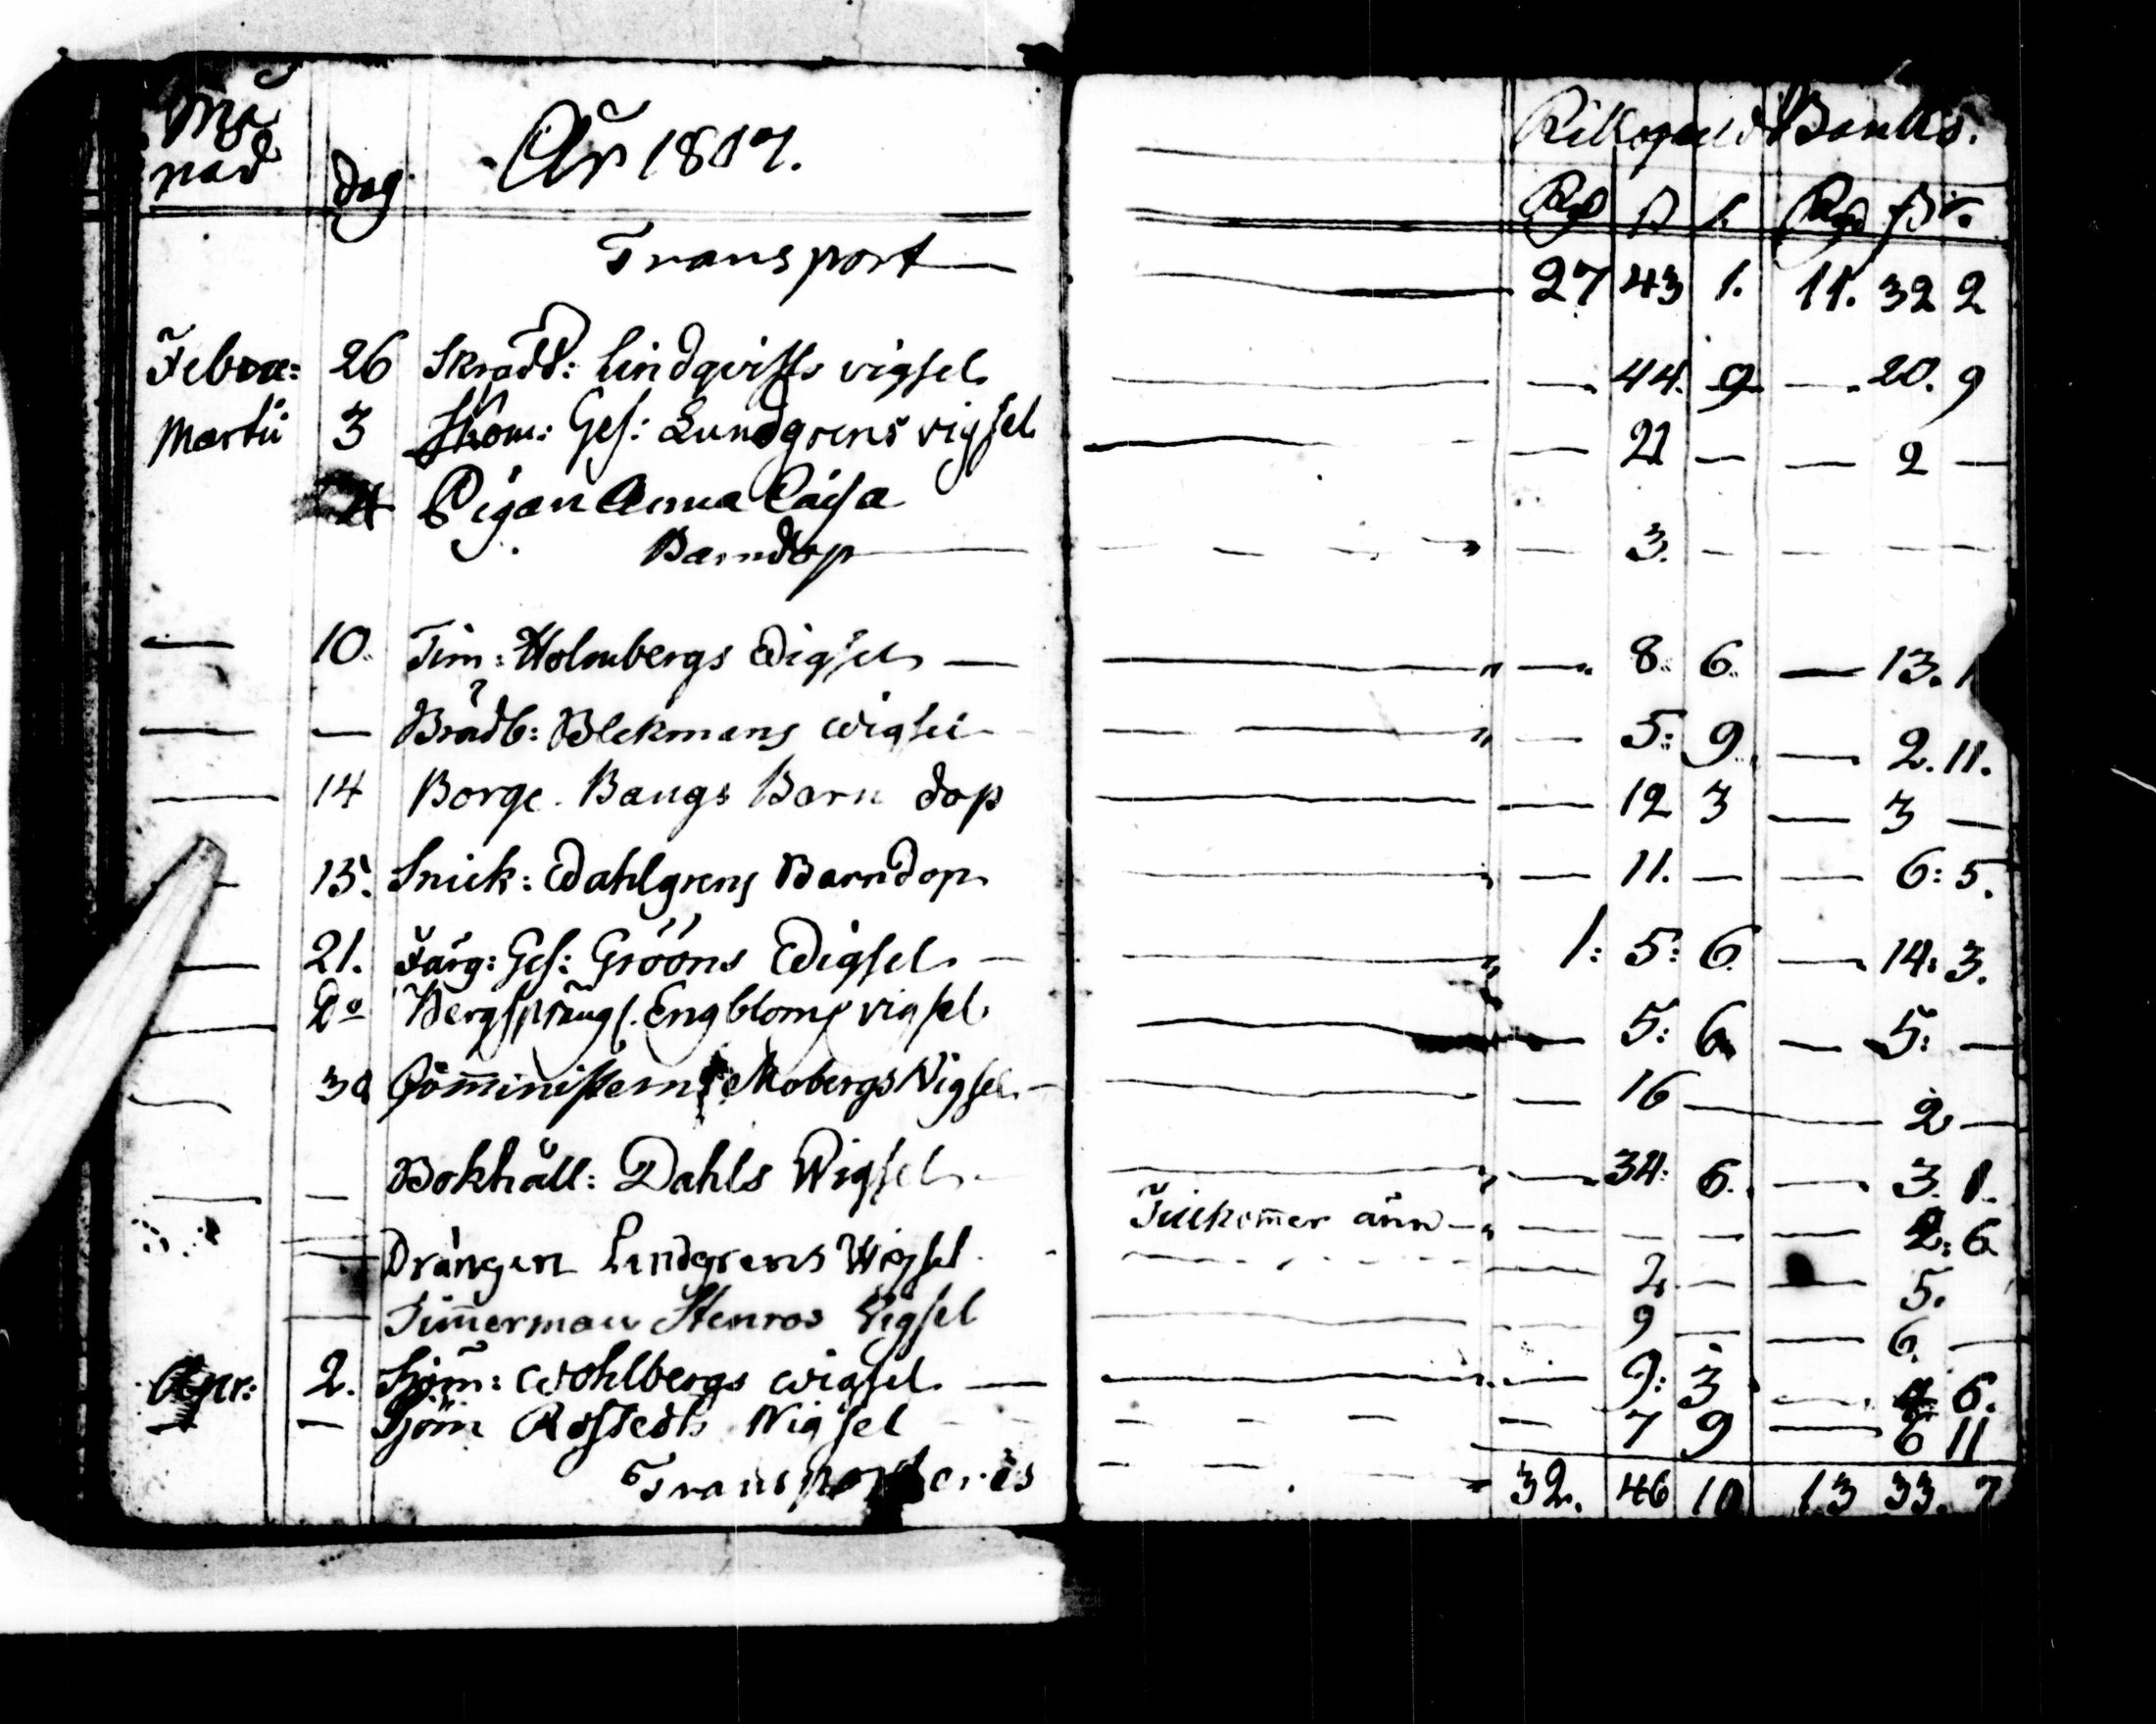 Må
nad dag År 1807. Riksgäld Banko.
Rdr ß r. Rdr ß r.
Transport 27 43 1. 11. 32 2
Febru: 26 Skrädd: Lindqvists vigsel — 44. 9 — 20. 9
Martii 3 Skom: Ges: Lundgrens vigsel — 21 — — 2 —
4 Pigan Anna Caisa
Barndop — 3. — — — —
— 10. Tim: Holmbergs Wigsel — — 8. 6. — 13. 1
— — Brädb: Blekmans wigsel — 5: 9. — 2. 11.
— 14 Borge. Bangs Barn dop — 12 3 — 3 —
— 15. Snick: Wahlgrens Barndop — 11. — — 6: 5.
— 21. Färg: Ges: Gröons Wigsel — 1: 5: 6. — 14: 3.
— Do Bergspräng. Engbloms vigsel — 5: 6 — 5: —
— 30 Comministerns Mobergs Vigsel — — 16 — — 2 —
— — Bokhåll: Dahls Wigsel — — 34: 6. — 3. 1.
Tillkomer änn — — — — — 2: 6
— Drängen Lindgrens Wigsel — 2 — — 5.
— Timerman Stenros Vigsel — 9 — — 6. —
Apr: 2. Sjöm: Wohlbergs wigsel — — 9: 3 — 4 6.
— — Sjöm Rosstedts Vigsel — 7 9 — 6 11
Transporteres 32. 46 10 13 33. 7